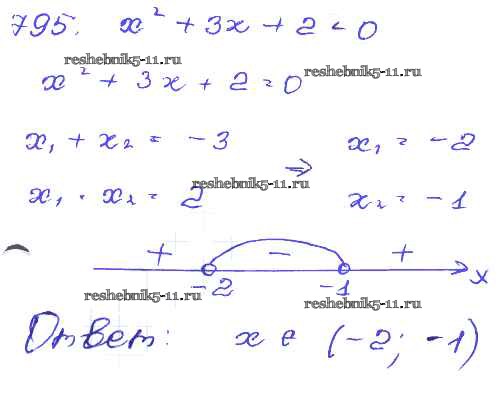 795. x² + 3x + 2 < 0
reshebnik5-11.ru
x² + 3x + 2 = 0 reshebnik5-11.ru
x₁ + x₂ = -3 x₁ = -2
reshebnik5-11.ru ⇒
x₁ · x₂ = 2 x₂ = -1
+ - +
-2 -1 x
reshebnik5-11.ru reshebnik5-11.ru
Ответ: x ∈ (-2; -1)